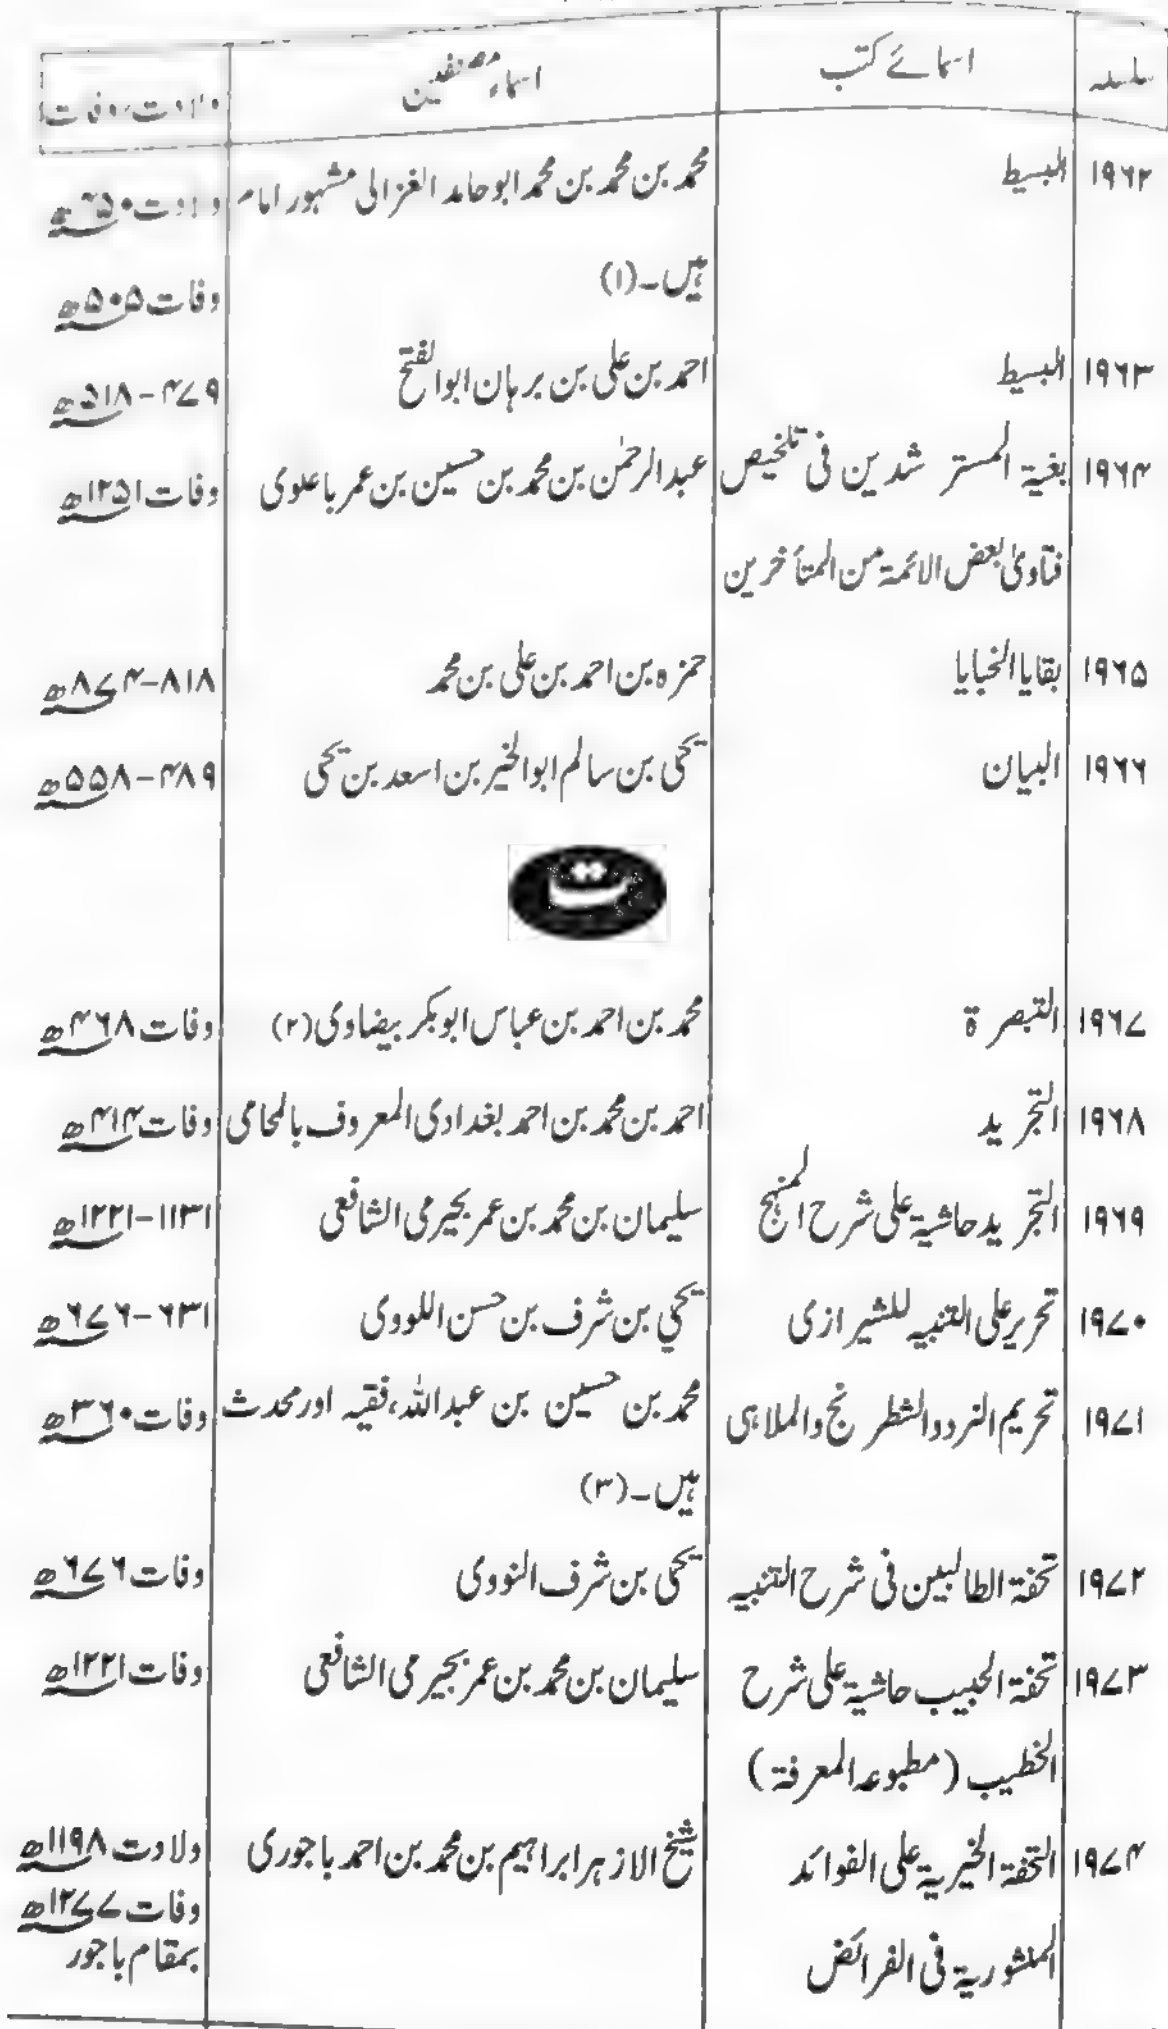 سلسلہ اسمائے کتب اسماء مصنفین ولادت، وفات
۱۹۶۲ البسیط محمد بن محمد بن محمد ابو حامد الغزالی مشہور امام ولادت ۴۵۰ھ
ہیں۔(۱) وفات ۵۰۵ھ
۱۹۶۳ البسیط احمد بن علی بن برہان ابوالفتح ۴۷۹-۵۱۸ھ
۱۹۶۴ بغیۃ المسترشدین فی تلخیص عبدالرحمٰن بن محمد بن حسین بن عمر باعلوی وفات ۱۲۵۱ھ
فتاویٰ بعض الائمۃ من المتأخرین
۱۹۶۵ بقایا الخبایا حمزہ بن احمد بن علی بن محمد ۸۱۸-۸۷۴ھ
۱۹۶۶ البیان یحیٰ بن سالم ابوالخیر بن اسعد بن یحیٰ ۴۸۹-۵۵۸ھ
ت
۱۹۶۷ التبصرۃ محمد بن احمد بن عباس ابوبکر بیضاوی(۲) وفات ۴۶۸ھ
۱۹۶۸ التجرید احمد بن محمد بن احمد بغدادی المعروف بالمحامی وفات ۴۱۴ھ
۱۹۶۹ التجرید حاشیۃ علی شرح المنہج سلیمان بن محمد بن عمر بجیرمی الشافعی ۱۱۳۱-۱۲۲۱ھ
۱۹۷۰ تحریر علی التنبیہ للشیرازی یحیٰ بن شرف بن حسن اللووی ۶۳۱-۶۷۶ھ
۱۹۷۱ تحریم النرد والشطرنج والملاہی محمد بن حسین بن عبداللہ، فقیہ اور محدث وفات ۳۶۰ھ
ہیں۔(۳)
۱۹۷۲ تحفۃ الطالبین فی شرح التنبیہ یحیٰ بن شرف النووی وفات ۶۷۶ھ
۱۹۷۳ تحفۃ الحبیب حاشیۃ علی شرح سلیمان بن محمد بن عمر بجیرمی الشافعی وفات ۱۲۲۱ھ
الخطیب (مطبوعہ المعرفۃ)
۱۹۷۴ التحفۃ الخیریۃ علی الفوائد شیخ الازہر ابراہیم بن محمد بن احمد باجوری ولادت ۱۱۹۸ھ
وفات ۱۲۷۷ھ
المنشوریۃ فی الفرائض بمقام باجور